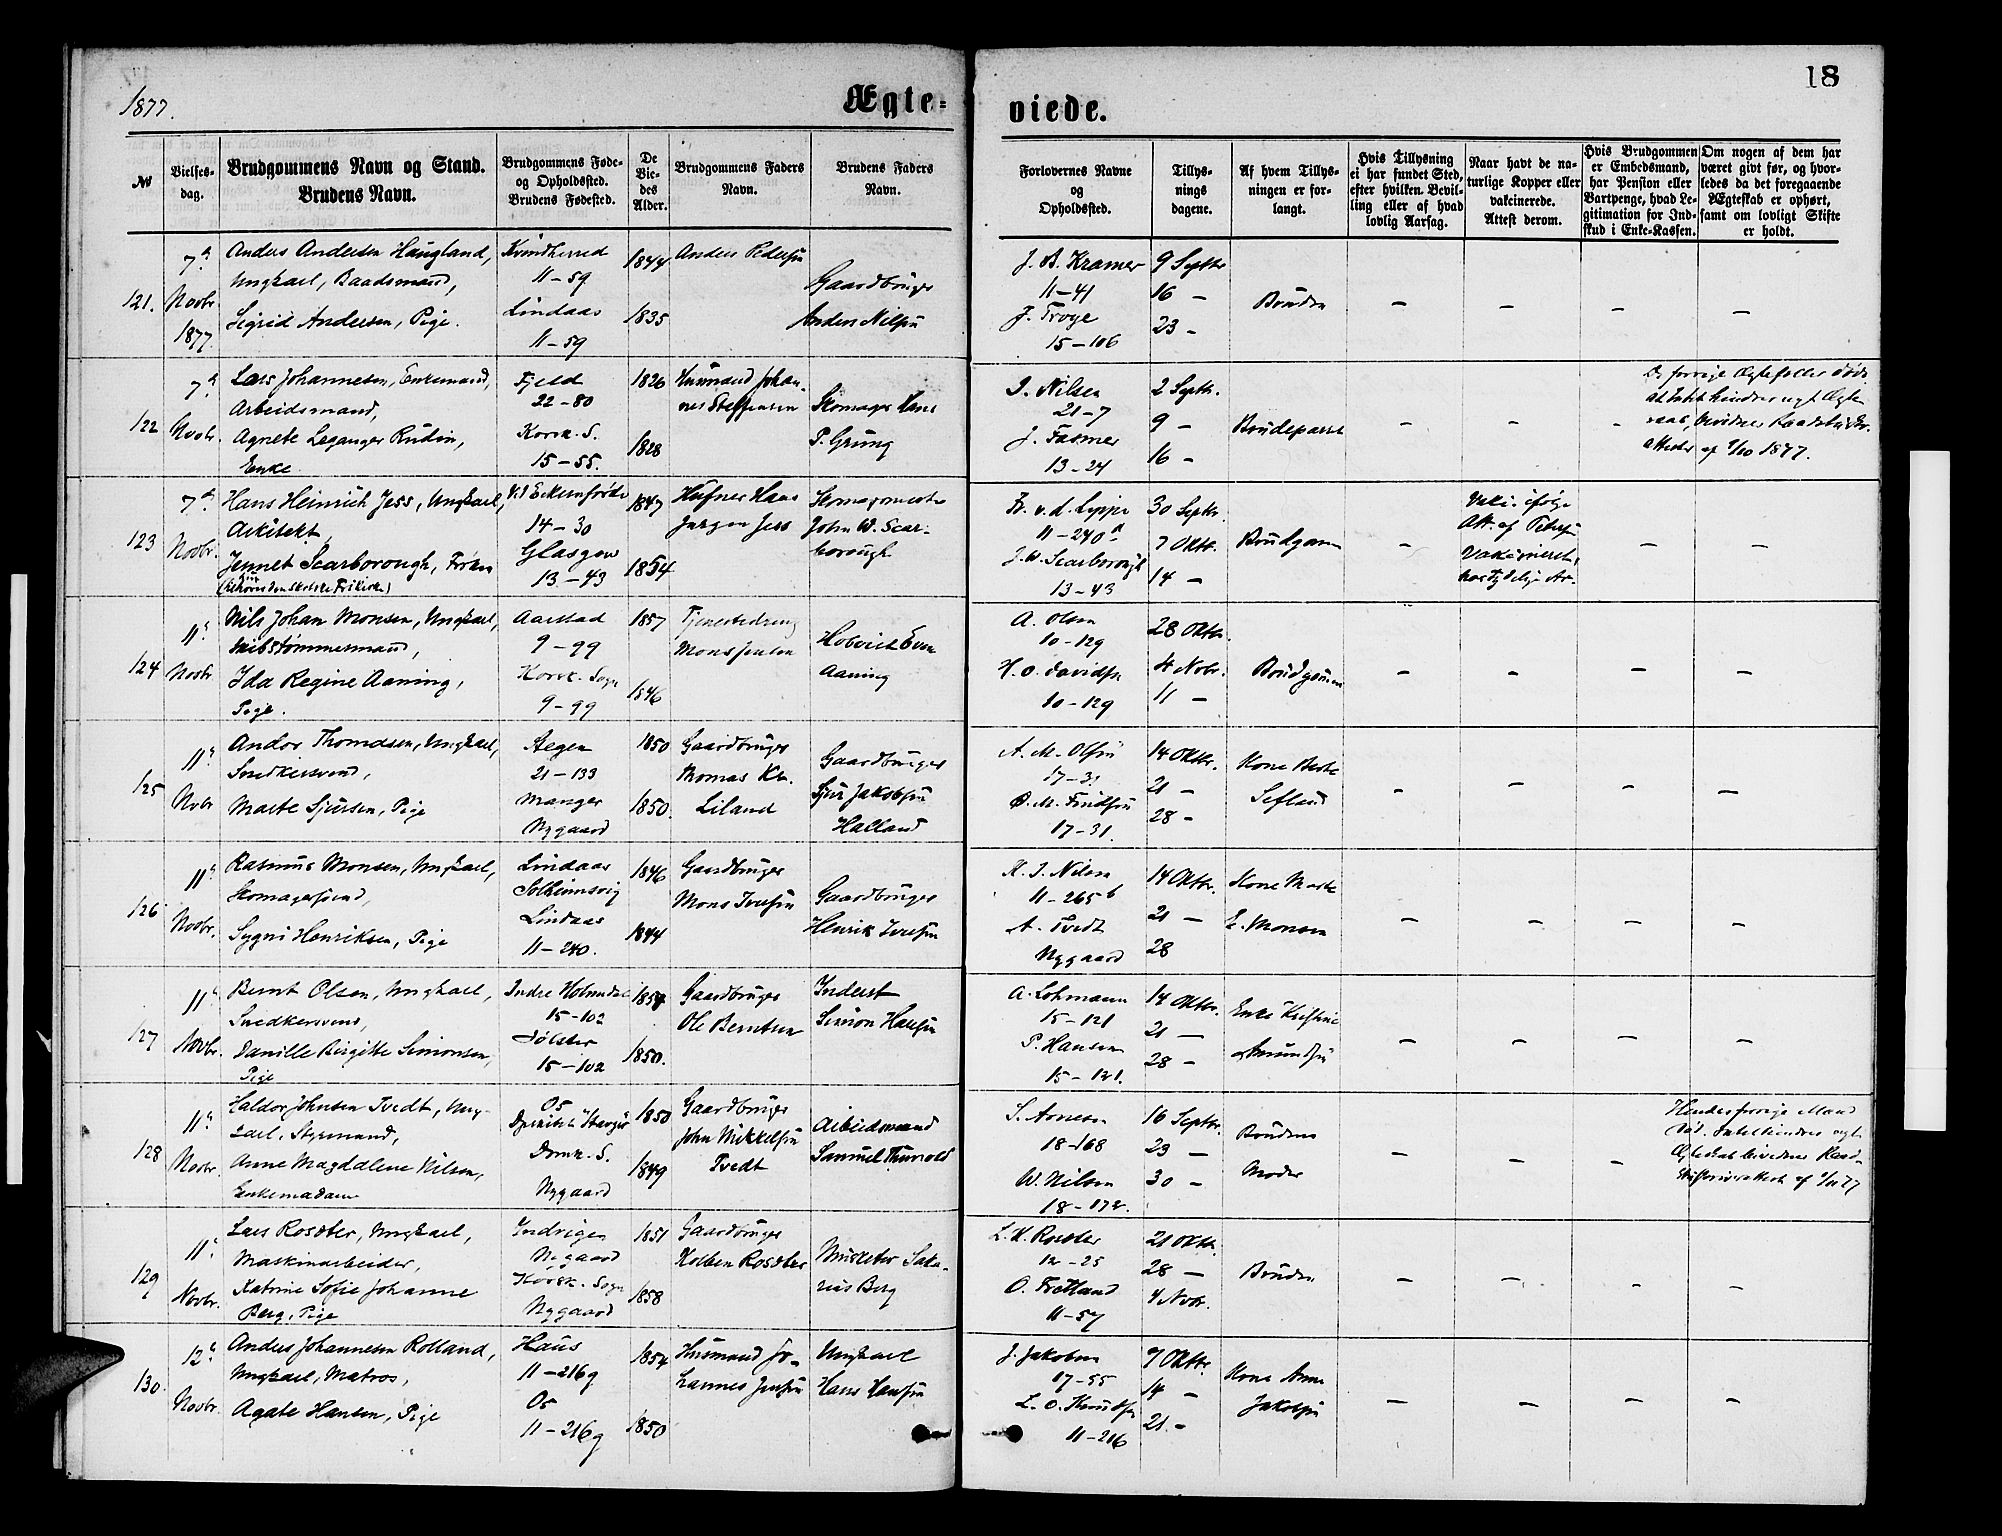 1877.
Ægte=
viede.
18
№
Vielses-
dag.
Brudgommens Navn og Stand.
Brudens Navn.
Brudgommens Føde-
og Opholdssted.
Brudens Fødested.
De
Vie-
des
Alder.
Brudgommens Faders
Navn.
Brudens Faders
Navn.
Forlovernes Navne
og
Opholdssted.
Tillys-
nings
dagene.
Af hvem Tillys-
ningen er for-
langt.
Hvis Tillysning
ei har fundet Sted,
efter hvilken Bevil-
ling eller af hvad
lovlig Aarsag.
Naar havt de na-
turlige Kopper eller
vakcinerede.
Attest derom.
Hvis Brudgommen
er Embedsmand,
har Pension eller
Vartpenge, hvad Le-
gitimation for Ind-
skud i Enke-Kassen.
Om nogen af dem har
været givt før, og hvor-
ledes da det foregaaende
Ægteskab er ophørt,
samt om lovligt Skifte
er holdt.
121.
7de
Novbr.
1877
Anders Andersen Haugland,
Ungkael, Baadsmand,
Sigrid Andersen, Pige.
Kvindherred
11-59
Lindaas
11-59
1844
1835
Anders Pedersen
Gaardbruger
Anders Nilsen
J. B. Kramer
11-41
J. Troye
15-106
9 Septbr
16 -
23 -
Bruden
122
7de
Novbr.
Lars Johannesen, Enkemand,
Arbeidsmand,
Agnete Leganger Rudin,
Enke.
Fjeld
22-80
Korsk. S.
15-55.
1826
1828
Husmand Johan-
nes Steffensen
Skomager Hans
P. Grung
J. Nilsen
21-7
J. Fasmer
13-24
2 Septbr.
9 -
16 -
Brudeparret
De forrige Ægtefeller døde
at Intet hindrer nyt Ægte-
skab, bevidner
1877.
123
7de
Novbr.
Hans Heinrich Jess, Ungkael,
Arkitekt,
Jennet Scarborough, Frøken
(tilhører den skotske Frikirke)
Vid Eckernförde
14-30
Glasgow
13-43
1847
1854
Hufner Hans
Jurgen Jess
Skomagermester
John W. Scar-
borough
Fr. v. d. Lippe
11-240a
J. W. Scarborough
13-43
30 Septbr.
7 Oktbr.
14 -
Brudgom
Vakc. ifølge
Att. af Petersen
Vakcineret,
har tydelige Ar.
124
11te
Novbr
Nils Johan Monsen, Ungkael,
Skibstømmermand,
Ida Regine Aaning,
Pige.
Aarstad
9-99
Korsk. Sogn
9-99
1857
1846
Tjenestedreng
Mons Jensen
Hoboist Even
Aaning
A. Olsen
10-129
H. O. Davidsen
10-129
28 Oktbr.
4 Novbr.
11 -
Brudgommen
125
11te
Novbr
Andor Thomassen, Ungkael,
Snedkersvend,
Marte Sjursen, Pige
21-133
Manger
Nygaard
1850
1850.
Gaardbruger
Thomas Kn.
Liland
Gaardbruger
Sjur Jakobsen
Halland
A. M. Olsen
17-31
O. M. Knudsen
17-31.
14 Oktbr.
21 -
28 -
Kone Berte
126
11te
Novbr.
Rasmus Monsen, Ungkael,
Skomagersvend,
Sygni Henriksen, Pige
Lindaas
Solheimsvig
Lindaas
11-240.
1846
1844
Gaardbruger
Mons Iversen
Gaardbruger
Henrik Iversen
K. J. Nilsen
11-265b
A. Tvedt
Nygaard
14 Oktbr.
21 -
28
Kone Marte
E. Monsen
127
11te
Novbr.
Bernt Olsen, Ungkael,
Snedkersvend,
Danille Birgitte Simonsen,
Pige
Indre Holmedal
15-102
Jølster
15-102
1850.
Gaardbruger
Ole Berntsen
Inderst
Simon Hansen
A. Lohmann
15-121
P. Hansen
15-121.
14 Oktbr.
21 -
28 -
Enke Kristine
Amundsen
128
11te
Novbr.
Haldor Johnsen Tvedt, Ung-
kael, Styrmand,
Anne Magdalene Nilsen,
Enkemadam
Os
Domk. S.
Nygaard
1850
1849
Gaardbruger
John Mikkelsen
Tvedt
Arbeidsmand
Samuel Thunold
S. Arnesen
18-168
W. Nilsen
18-172.
16 Septbr.
23 -
30 -
Brudens
Moder
Hendes forrige Mand
død. Intet hindrer nyt
Ægteskab bevidner
129
11te
Novbr.
Lars Rosdter, Ungkael,
Maskinarbeider,
Katrine Sofie Johanne
Berg, Pige
Indvigen
Nygaard
Korsk. Sogn
Nygaard
1851
1858
Gaardbruger
Kolben Rosdter
Musketer Saka-
rias Berg
12-25
O. Fretland
11-57
21 Oktbr.
28 -
4 Novbr.
Bruden
130.
12te
Novbr.
Anders Johannesen Rolland,
Ungkael, Matros,
Agate Hansen, Pige
Haus
11-216g
Os
11-216g
1854
1850
Husmand Jo-
hannes Jensen
Ungkael
Hans Hansen
J. Jakobsen
17-55
L. O. Knudsen
11-216
7 Oktbr.
14 -
21. -
Kone Anna
Jakobsen